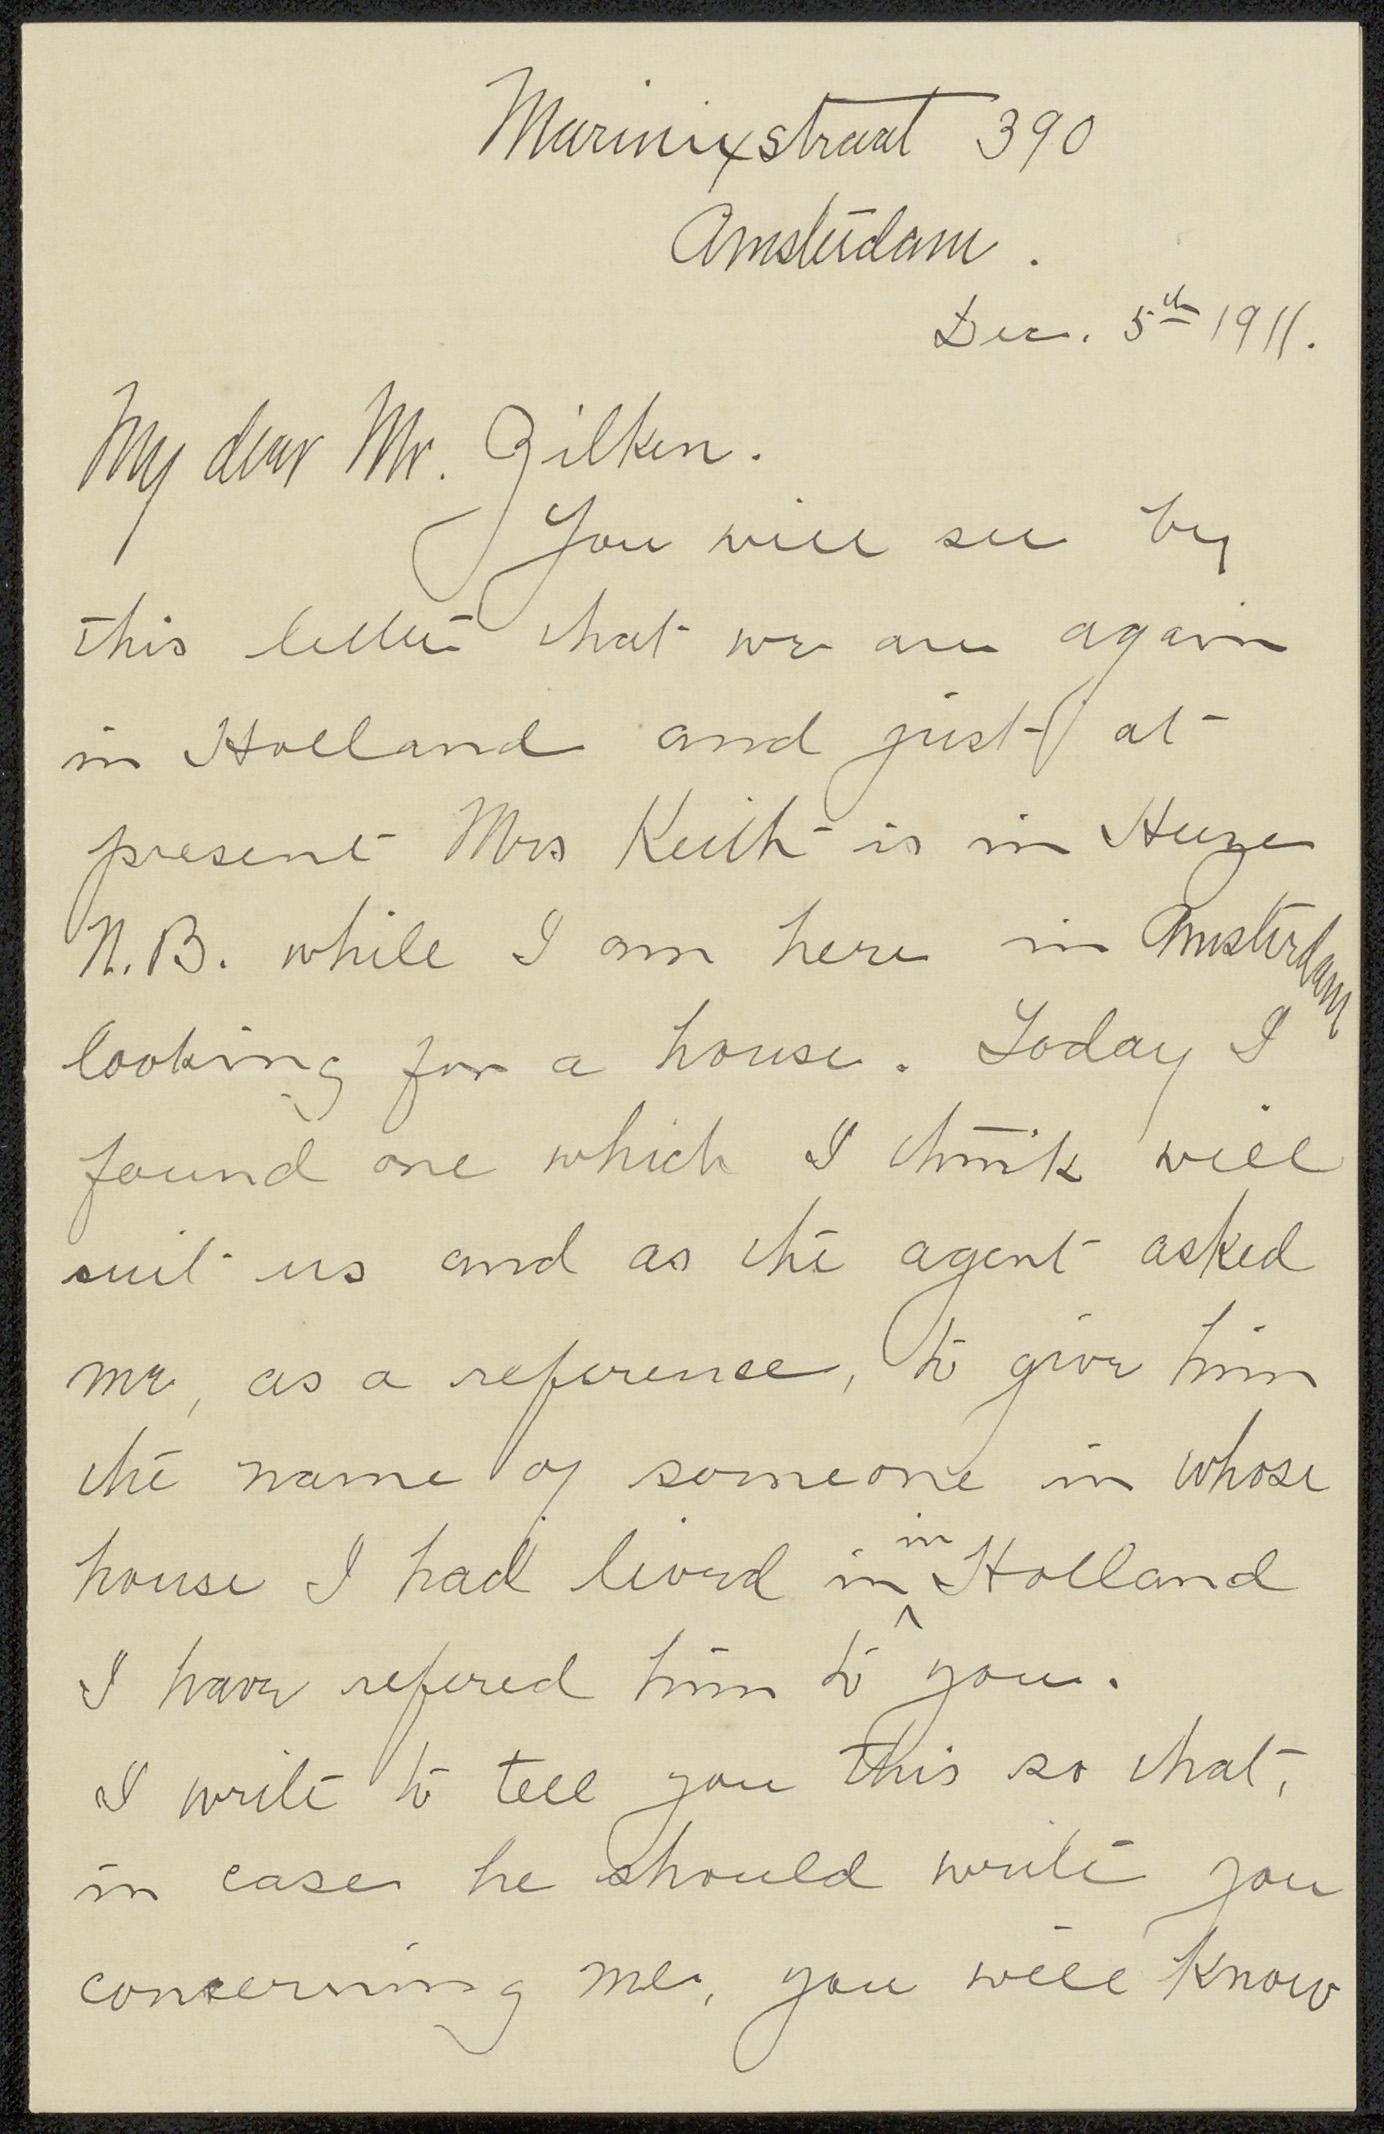 Marnixstraat 390
Amsterdam.
Dec. 5th 1911.
My dear Mr. Zilken.
You will see by
this letter that we are again
in Holland and just at
present Mrs Keith is in Heeze
N.B. while I am here in Amsterdam
looking for a house. Today I
found one which I think will
suit us and as the agent asked
me, as a reference, to give him
the name of someone in whose
house I had lived in in Holland
I have refered him to you.
I write to tell you this so that,
in case he should write you
concerning me, you will know